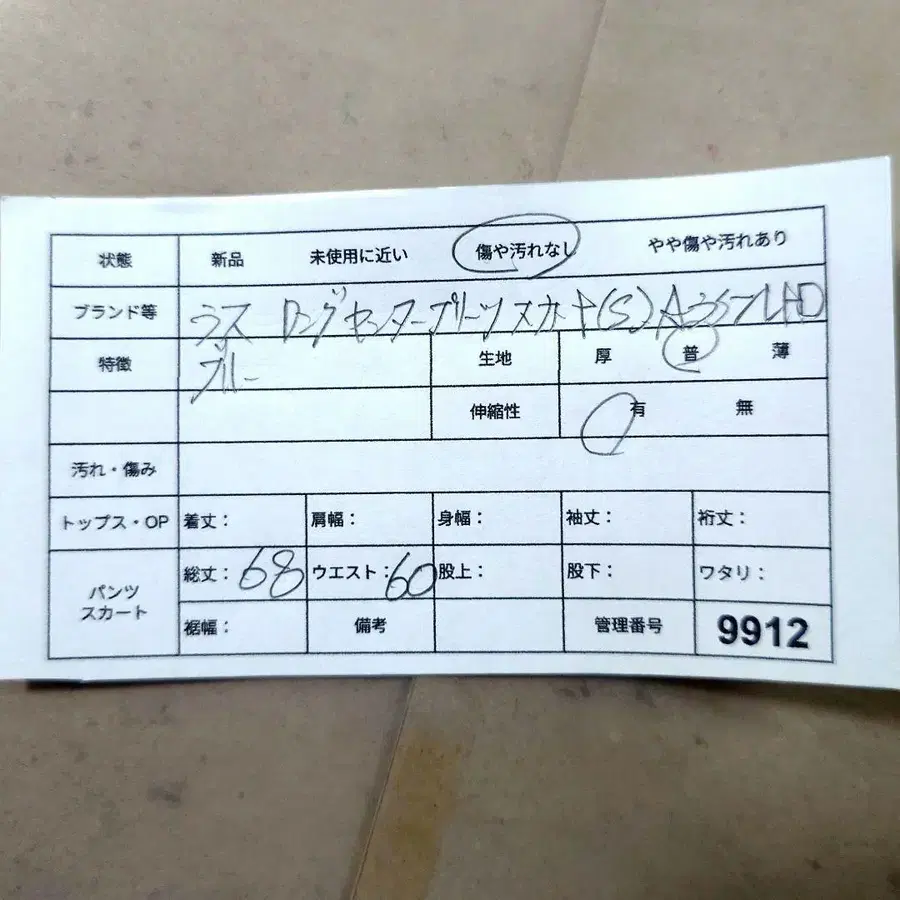 状態 新品 未使用に近い 傷や汚れなし やや傷や汚れあり
ブランド等 ラス ロングセンタープリーツスカート(S)
特徴 ブルー 生地 厚 普 薄
伸縮性 有 無
汚れ・傷み
トップス・OP 着丈: 肩幅: 身幅: 袖丈: 裄丈:
パンツ スカート 総丈:68 ウエスト:60 股上: 股下: ワタリ:
裾幅: 備考 管理番号 9912